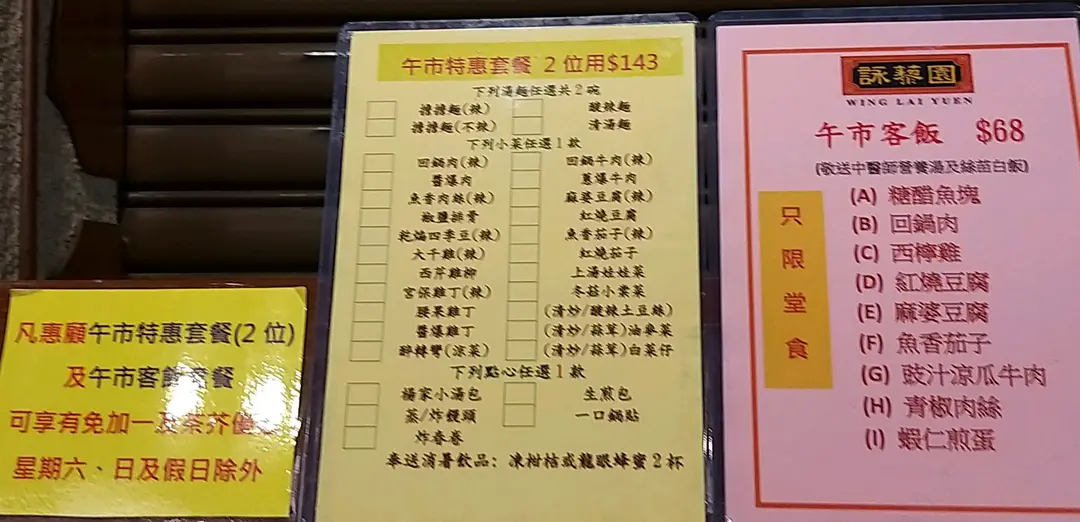 凡惠顧午市特惠套餐(2 位)
及午市客飯套餐
可享有免加一及茶芥優
星期六、日及假日除外
午市特惠套餐 2 位用$143
下列湯麵任選共 2 碗
擔擔麵(辣) 酸辣麵
擔擔麵(不辣) 清湯麵
下列小菜任選 1 款
回鍋肉(辣) 回鍋牛肉(辣)
醬爆肉 蔥爆牛肉
魚香肉絲(辣) 麻婆豆腐(辣)
椒鹽排骨 紅燒豆腐
乾煸四季豆(辣) 魚香茄子(辣)
大千雞(辣) 紅燒茄子
西芹雞柳 上湯娃娃菜
宮保雞丁(辣) 冬菇小棠菜
腰果雞丁 (清炒/酸辣土豆絲)
醬爆雞丁 (清炒/蒜茸)油麥菜
醉轉彎(涼菜) (清炒/蒜茸)白菜仔
下列點心任選 1 款
楊家小湯包 生煎包
蒸/炸饅頭 一口鍋貼
炸春卷
奉送消暑飲品: 凍柑桔或龍眼蜂蜜 2 杯
詠藜園
WING LAI YUEN
午市客飯 $68
(敬送中醫師營養湯及絲苗白飯)
只限堂食
(A) 糖醋魚塊
(B) 回鍋肉
(C) 西檸雞
(D) 紅燒豆腐
(E) 麻婆豆腐
(F) 魚香茄子
(G) 豉汁涼瓜牛肉
(H) 青椒肉絲
(I) 蝦仁煎蛋